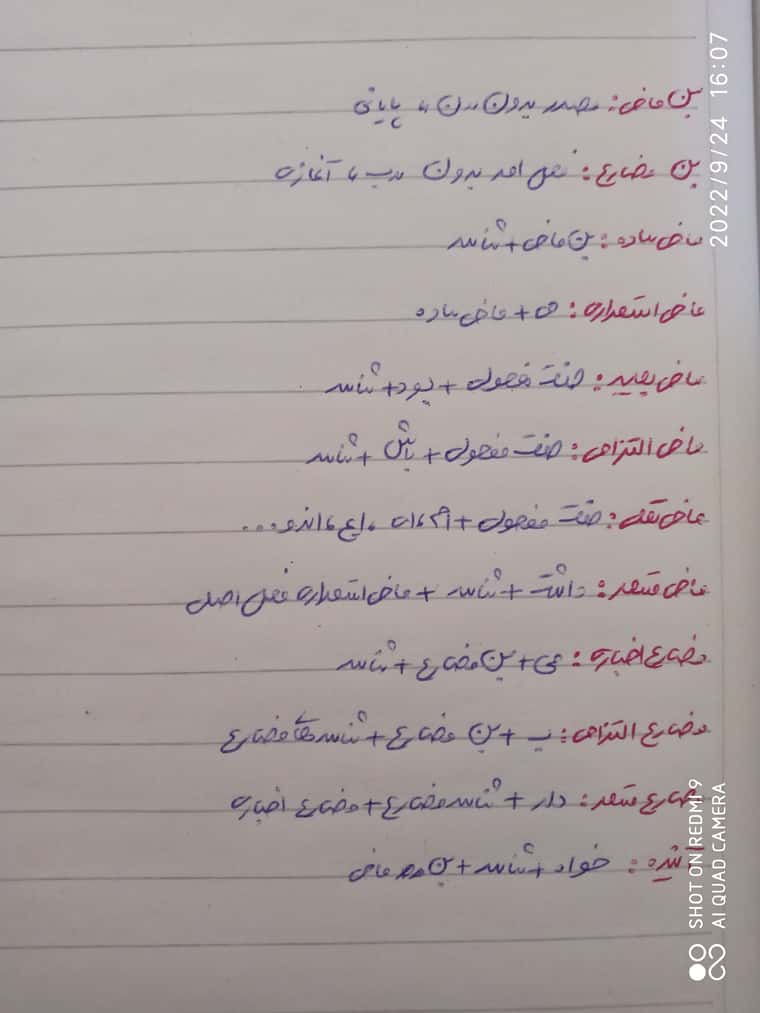 بن ماضی: مصدر بدون ـَ ن پایانی
بن مضارع: فعل امر بدون بـ آغازه
ماضی ساده: بن ماضی + شناسه
ماضی استمراری: می + ماضی ساده
ماضی بعید: صفت مفعولی + بود + شناسه
ماضی التزامی: صفت مفعولی + باش + شناسه
ماضی نقلی: صفت مفعولی + ام، ای، ایم، اند و...
ماضی مستمر: داشت + شناسه + ماضی استمراری فعل اصلی
مضارع اخباری: می + بن مضارع + شناسه
مضارع التزامی: ب + بن مضارع + شناسه های مضارع
مضارع مستمر: دار + شناسه مضارع + مضارع اخباری
آینده: خواه + شناسه + بن ماضی
2022/9/24 16:07
SHOT ON REDMI 9
AI QUAD CAMERA